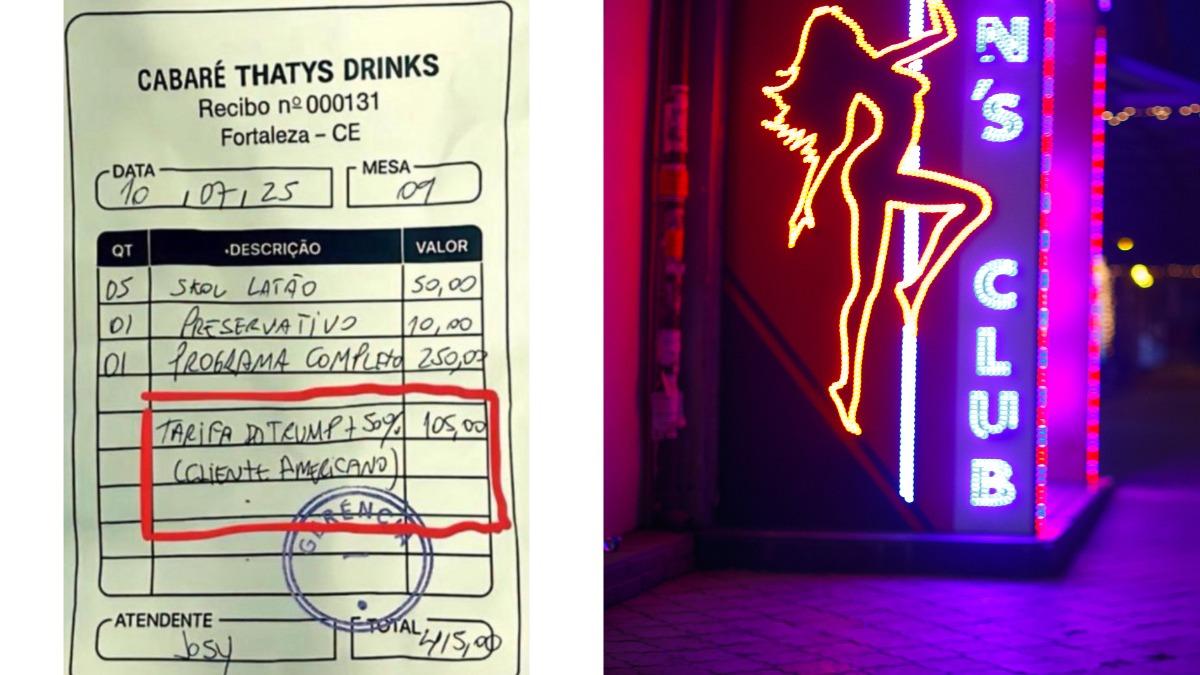 CABARÉ THATYS DRINKS
Recibo nº 000131
Fortaleza – CE
DATA
10 , 07, 25
MESA
09
QT DESCRIÇÃO VALOR
05 SKOL LATÃO 50,00
01 PRESERVATIVO 10,00
01 PROGRAMA COMPLETO 250,00
TARIFA DO TRUMP + 50% 105,00
(CLIENTE AMERICANO)
GERÊNCIA
ATENDENTE
Josy
TOTAL
415,00
N'S CLUB